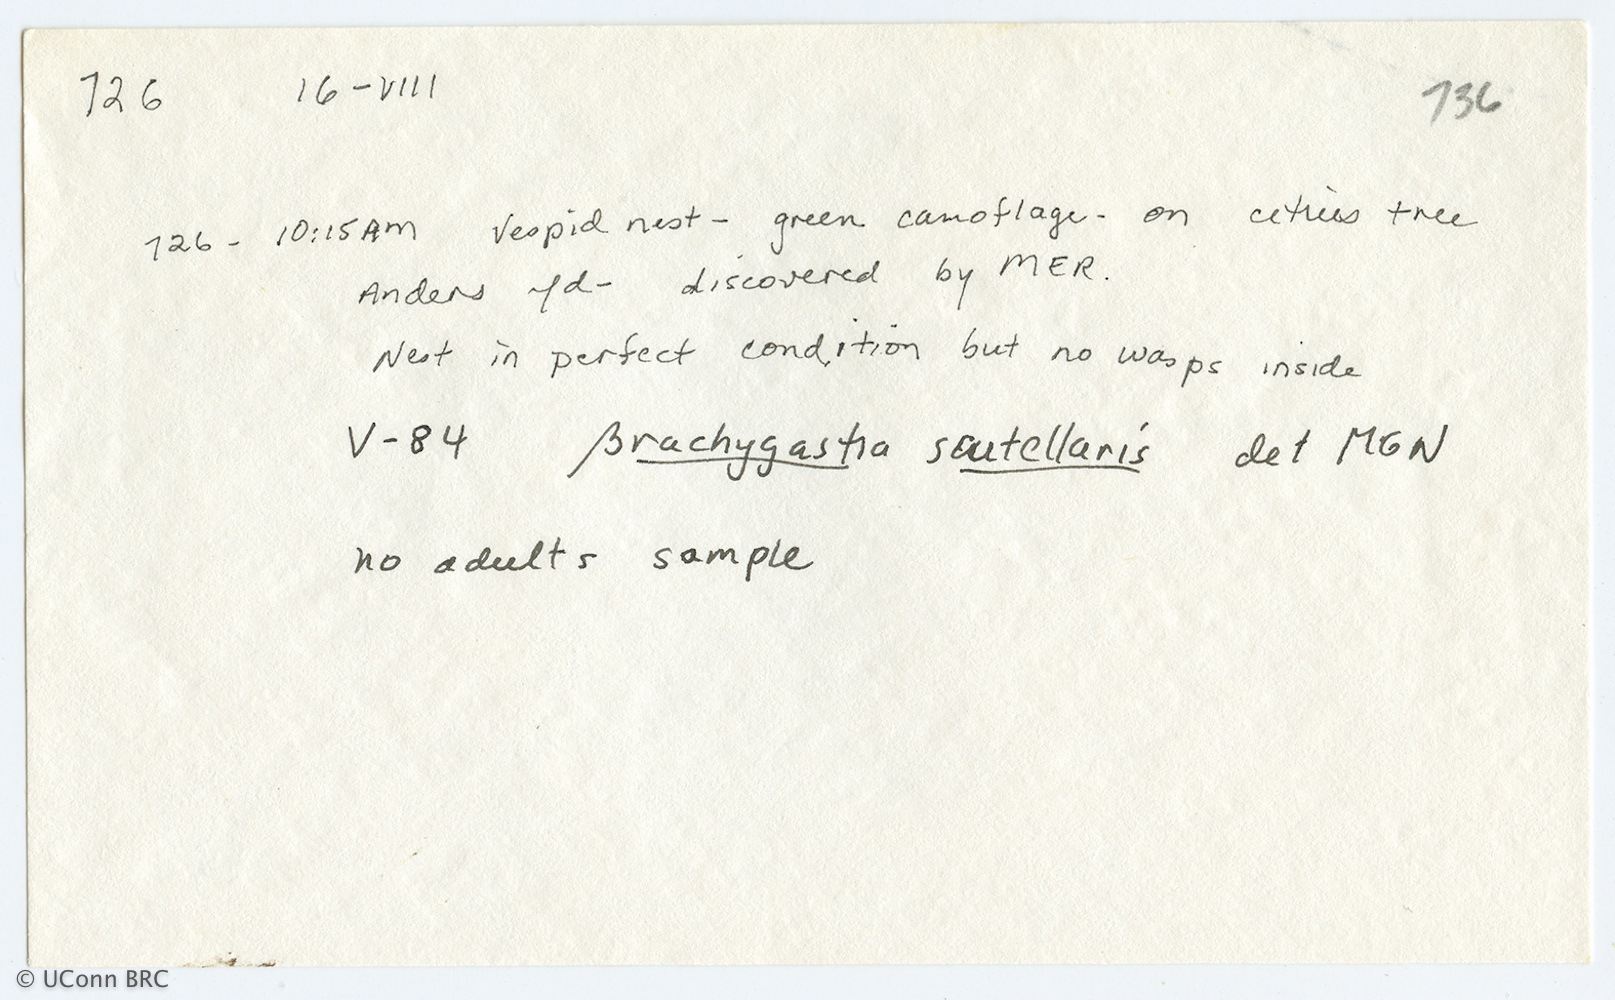 726 16-VIII 736
726- 10:15AM Vespid nest- green camoflage- on citrus tree
Anders yd- discovered by MER.
Nest in perfect condition but no wasps inside
V-84 Brachygastra scutellaris det MGN
no adults sample
© UConn BRC